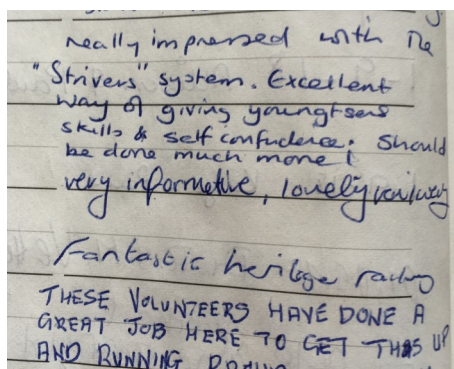 really impressed with the
"Strivers" system. Excellent
way of giving youngtsers
skills & self confidence. Should
be done much more!
very informative, lovely railway
Fantastic heritage railway
THESE VOLUNTEERS HAVE DONE A
GREAT JOB HERE TO GET THIS UP
AND RUNNING